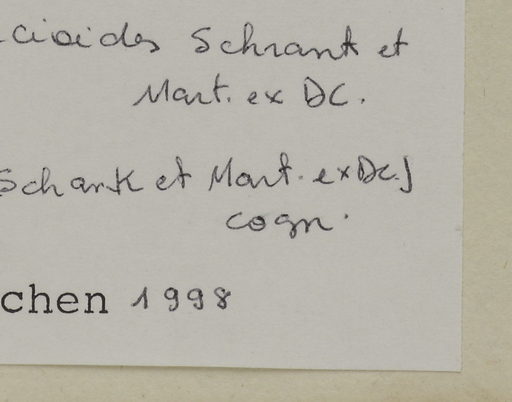 cioides Schrank et
Mart. ex DC.
Schank et Mart. ex DC.]
Cogn.
chen 1998